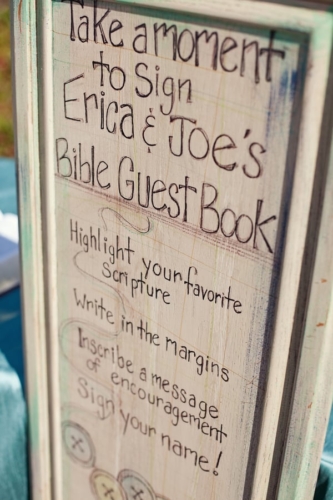 Take a moment
to Sign
Erica & Joe's
Bible Guest Book
Highlight your favorite
Scripture
Write in the margins
Inscribe a message
of encouragement
Sign your name!